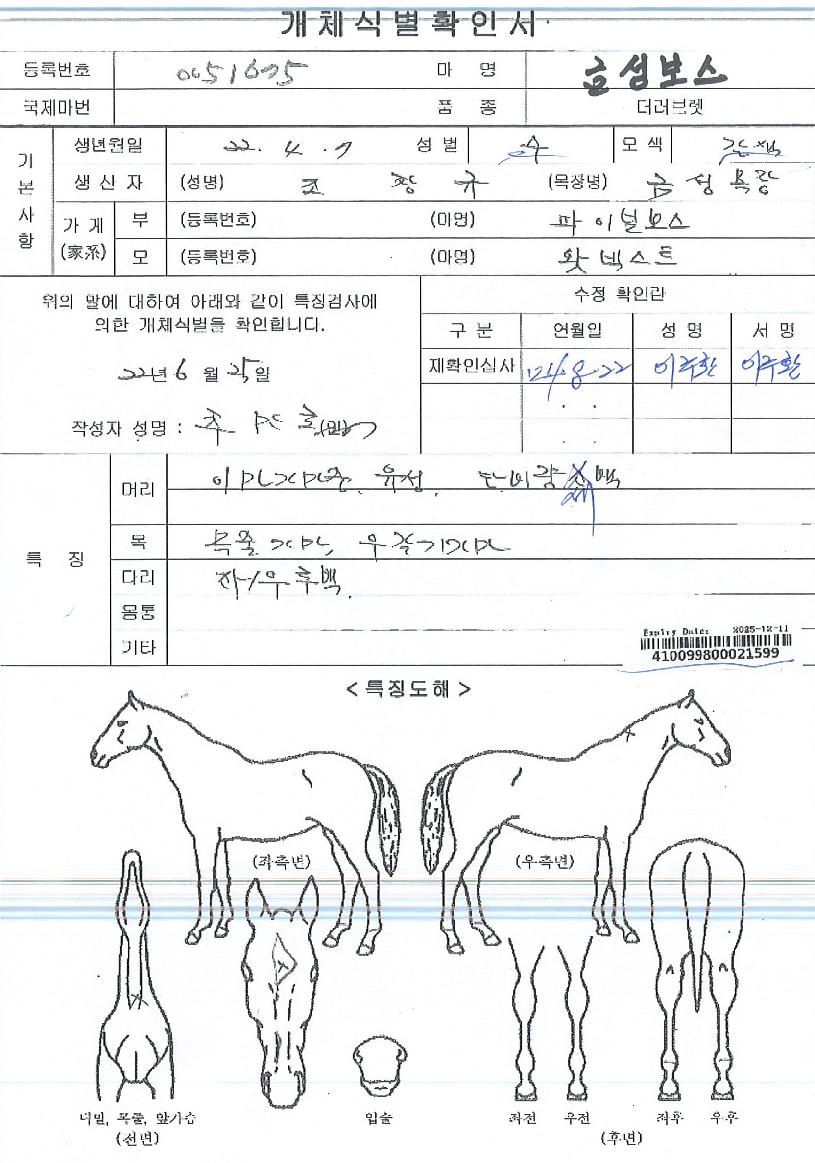 개체식별확인서
등록번호 0051695 마 명 금성보스
국제마번 품 종 더러브렛
기본사항
생년월일 22. 4. 7 성 별 수 모 색
생 산 자 (성명) 조 창 규 (목장명) 금성목장
가 계 (家系)
부 (등록번호) (마명) 파이널보스
모 (등록번호) (마명) 왓넥스트
위의 말에 대하여 아래와 같이 특징검사에
의한 개체식별을 확인합니다.
22년 6월 25일
작성자 성명 :
수정 확인란
구 분 연월일 성 명 서 명
재확인심사 24.8.22 이주환 이주환
. .
. .
특 징
머리 유성, 백
목 목줄
다리 좌/우후백
몸통
기타
Expiry Date: 2025-12-11
410099800021599
<특징도해>
(좌측면) (우측면)
턱밑, 목줄, 앞가슴
(전면)
입술
좌전 우전 좌후 우후
(후면)